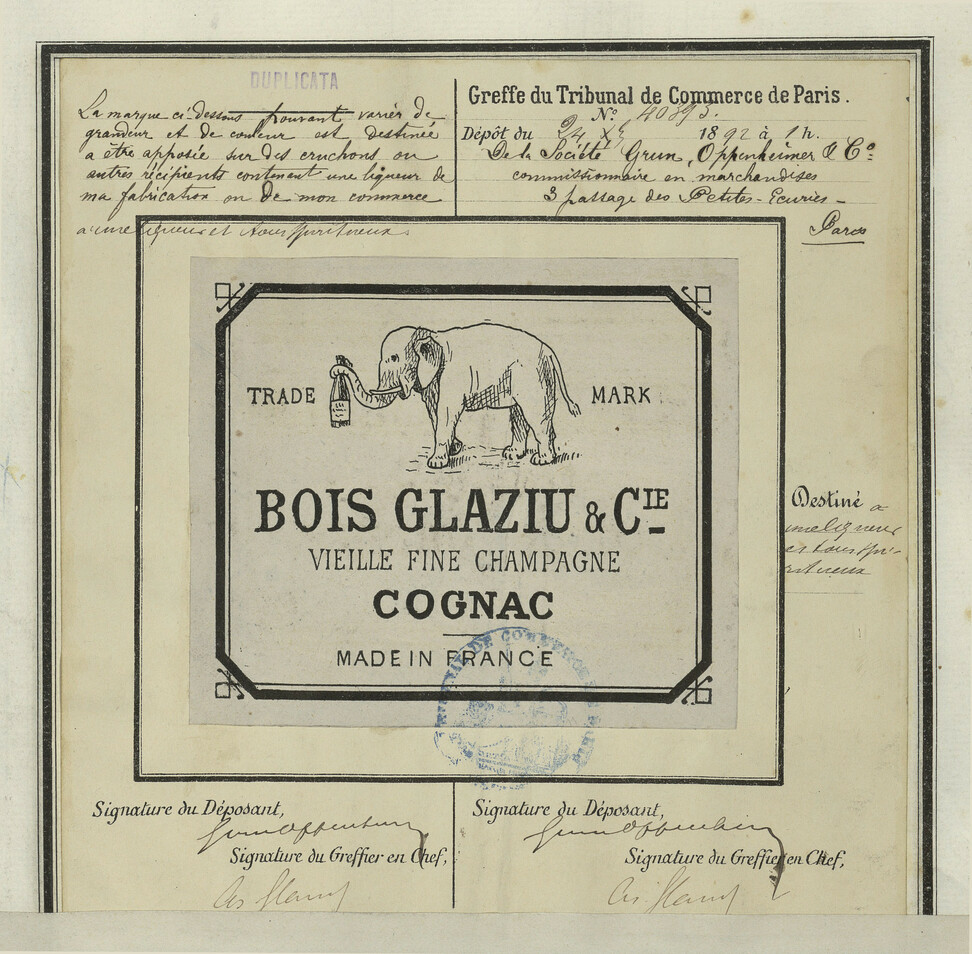 DUPLICATA
La marque ci-dessous pouvant varier de
grandeur et de couleur est destinée
a être apposée sur des cruchons ou
autres récipients contenant une liqueur de
ma fabrication ou de mon commerce
a une liqueur et tous spiritueux
Greffe du Tribunal de Commerce de Paris.
N° 40393.
Dépôt du 24 Xe 1892 à 1 h.
De la Société Grun, Oppenheimer & Co
commissionnaire en marchandises
3 passage des Petites-Ecuries-
Paris
TRADE MARK
BOIS GLAZIU & CIE
VIEILLE FINE CHAMPAGNE
COGNAC
MADE IN FRANCE
Destiné a
une liqueur
et tous spi-
ritueux
TRIBUNAL DE COMMERCE
Signature du Déposant,
Signature du Greffier en Chef,
Signature du Déposant,
Signature du Greffier en Chef,